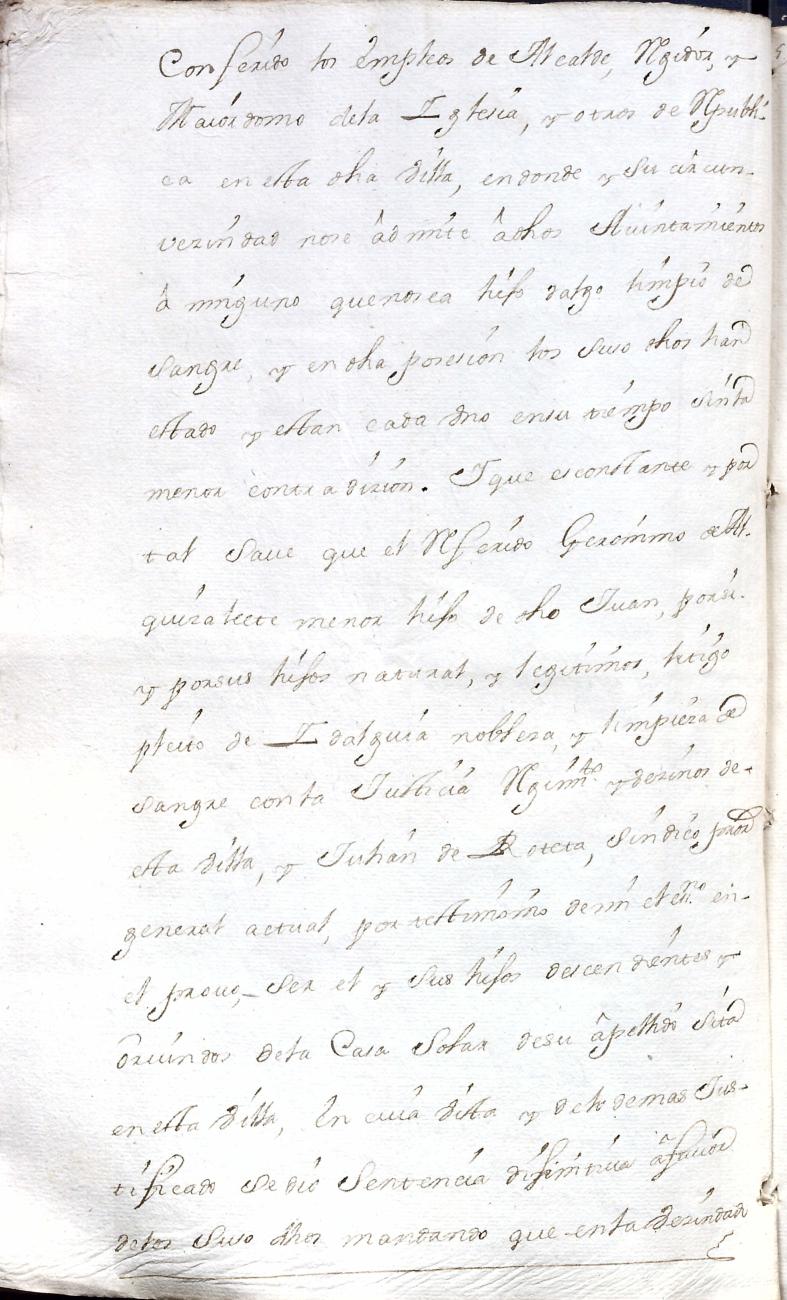 Conferido los Empleos de Alcalde, Rejidor, y
Maiordomo dela Iglesia, y otros de Republi-
ca en esta dha Villa, en donde y su circun-
vezindad nose âdmite âdhos Aiuntamientos
â ninguno quenosea hijo dalgo limpio de
Sangre, y en dha posesion los suso dhos han
estado y estan cada Vno ensu tiempo sinla
menor contradizion. Y que esconstante y por
tal Save que el Referido Geronimo de Al-
quizalete menor hijo de dho Juan, porsi-
y porsus hijos natural, y legitimos, litigo
pleito de Idalguia nobleza, y limpieza de
Sangre conla Justicia Regimto. y vezinos de-
esta Villa, y Juhan de Roteta, Sindico pror
general actual, por testimonio demi el esno. en-
el provo, Ser el y sus hijos descendientes y
Oriundos dela Casa Solar desu âpellido Sita
en esta Villa, En cuia Vista y delo demas Jus-
tificado se dio Sentencia difinitiua âfauor
delos Suso dhos mandando que enla Vezindad